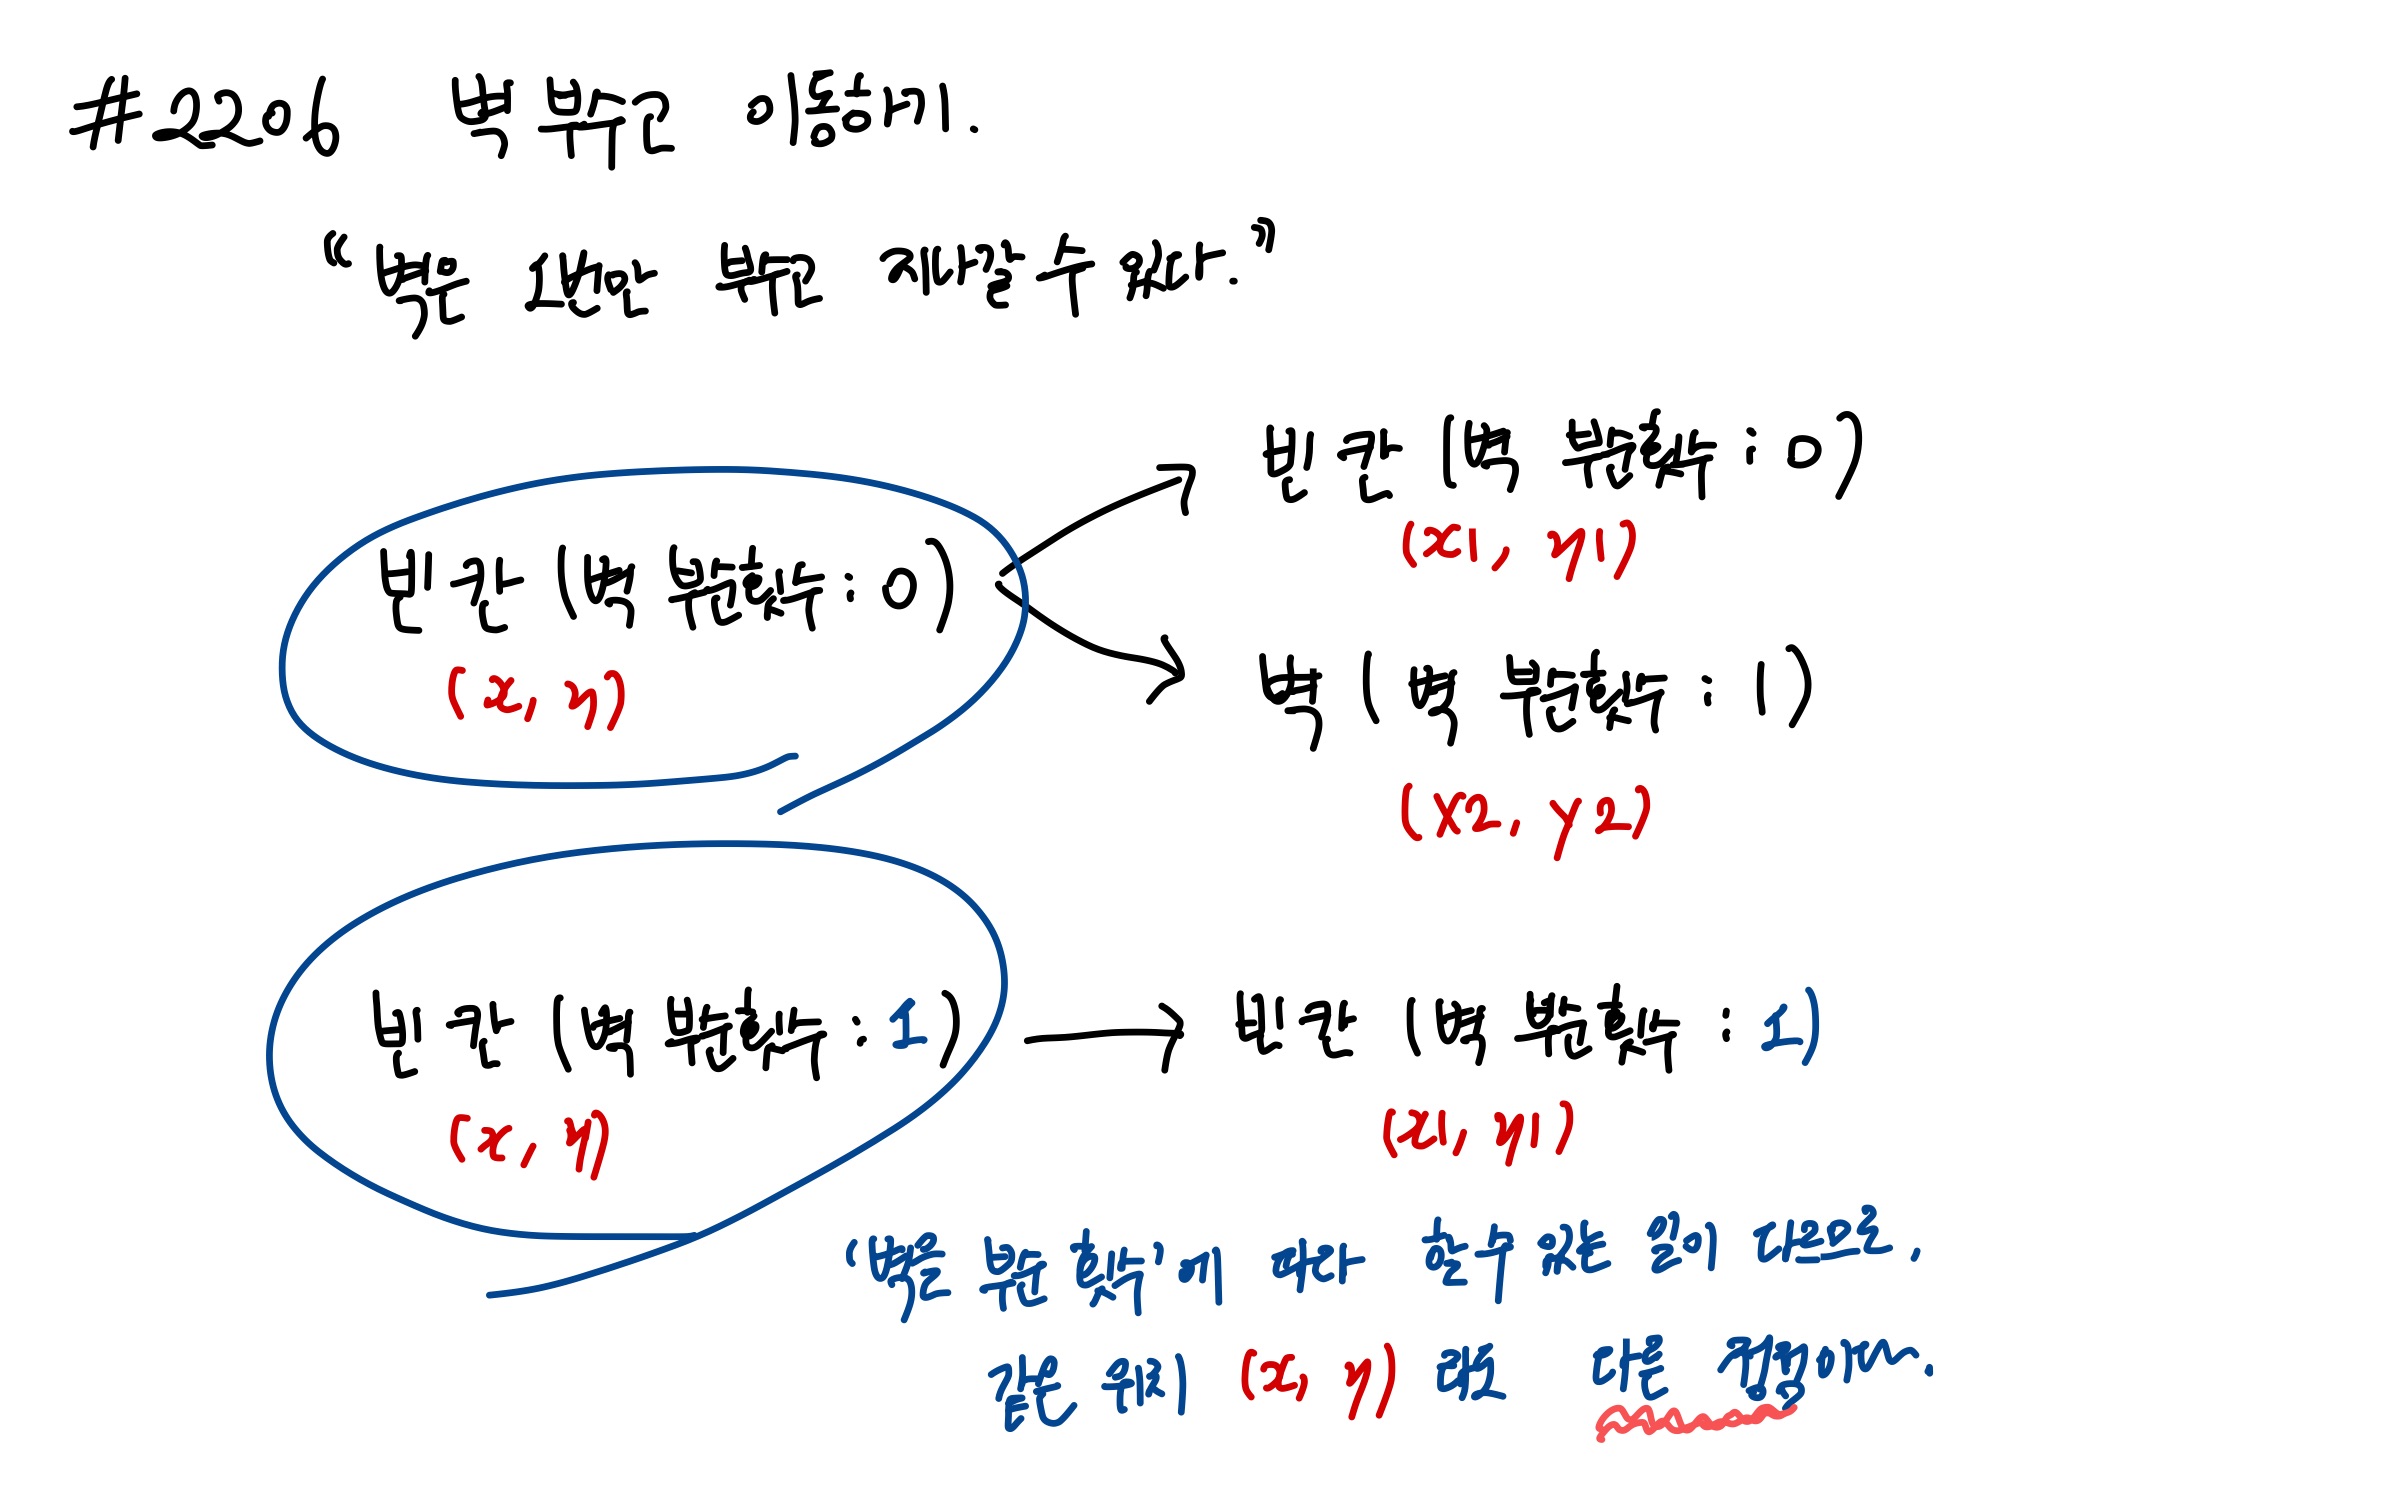 #2206 벽 부수고 이동하기.
“벽은 1번만 부수고 지나갈 수 있다.”
빈 칸 (벽 부순횟수 : 0)
(x1, y1)
빈 칸 (벽 부순횟수 : 0)
(x, y)
벽 (벽 부순횟수 : 1)
(x2, y2)
빈 칸 (벽 부순횟수 : 1) → 빈 칸 (벽 부순횟수 : 1)
(x, y) (x1, y1)
“벽을 부순 횟수”에 따라 할 수 있는 일이 다르므로,
같은 위치 (x, y) 라도 다른 정점이다.